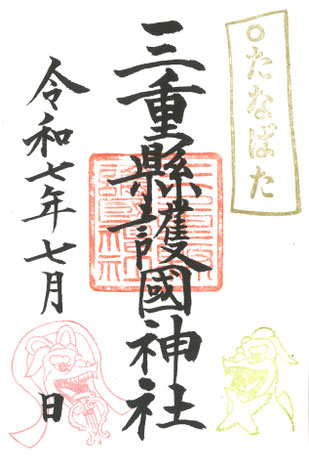 ○たなばた
三重縣護國神社
令和七年七月 日